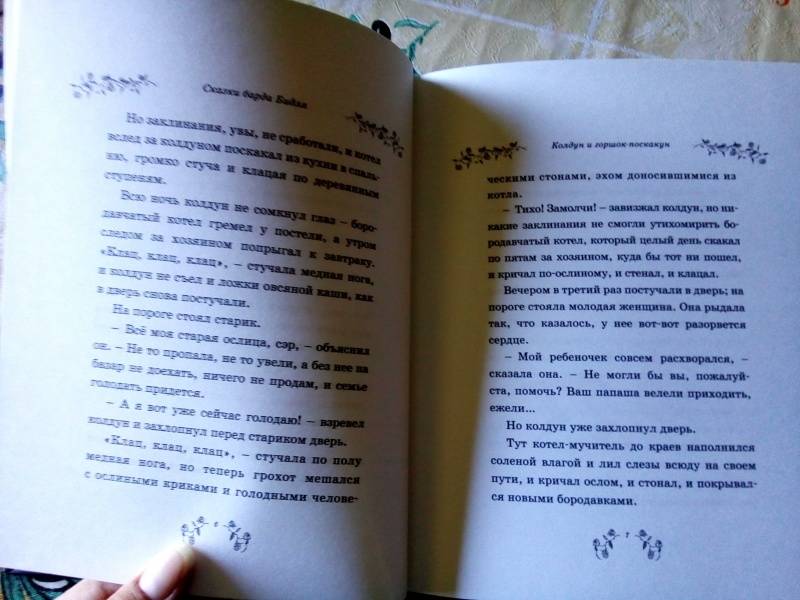 Сказки барда Бидля
Но заклинания, увы, не сработали, и котел
вслед за колдуном поскакал из кухни в спаль-
ню, громко стуча и клацая по деревянным
ступеням.
Всю ночь колдун не сомкнул глаз – боро-
давчатый котел гремел у постели, а утром
следом за хозяином попрыгал к завтраку.
«Клац, клац, клац», – стучала медная нога,
и колдун не съел и ложки овсяной каши, как
в дверь снова постучали.
На пороге стоял старик.
– Всё моя старая ослица, сэр, – объяснил
он. – Не то пропала, не то увели, а без нее на
базар не доехать, ничего не продам, и семье
голодать придется.
– А я вот уже сейчас голодаю! – взревел
колдун и захлопнул перед стариком дверь.
«Клац, клац, клац», – стучала по полу
медная нога, но теперь грохот мешался
с ослиными криками и голодными челове-
6
Колдун и горшок-поскакун
ческими стонами, эхом доносившимися из
котла.
– Тихо! Замолчи! – завизжал колдун, но ни-
какие заклинания не смогли утихомирить бо-
родавчатый котел, который целый день скакал
по пятам за хозяином, куда бы тот ни пошел,
и кричал по-ослиному, и стенал, и клацал.
Вечером в третий раз постучали в дверь; на
пороге стояла молодая женщина. Она рыдала
так, что казалось, у нее вот-вот разорвется
сердце.
– Мой ребеночек совсем расхворался, –
сказала она. – Не могли бы вы, пожалуй-
ста, помочь? Ваш папаша велели приходить,
ежели...
Но колдун уже захлопнул дверь.
Тут котел-мучитель до краев наполнился
соленой влагой и лил слезы всюду на своем
пути, и кричал ослом, и стонал, и покрывал-
ся новыми бородавками.
7